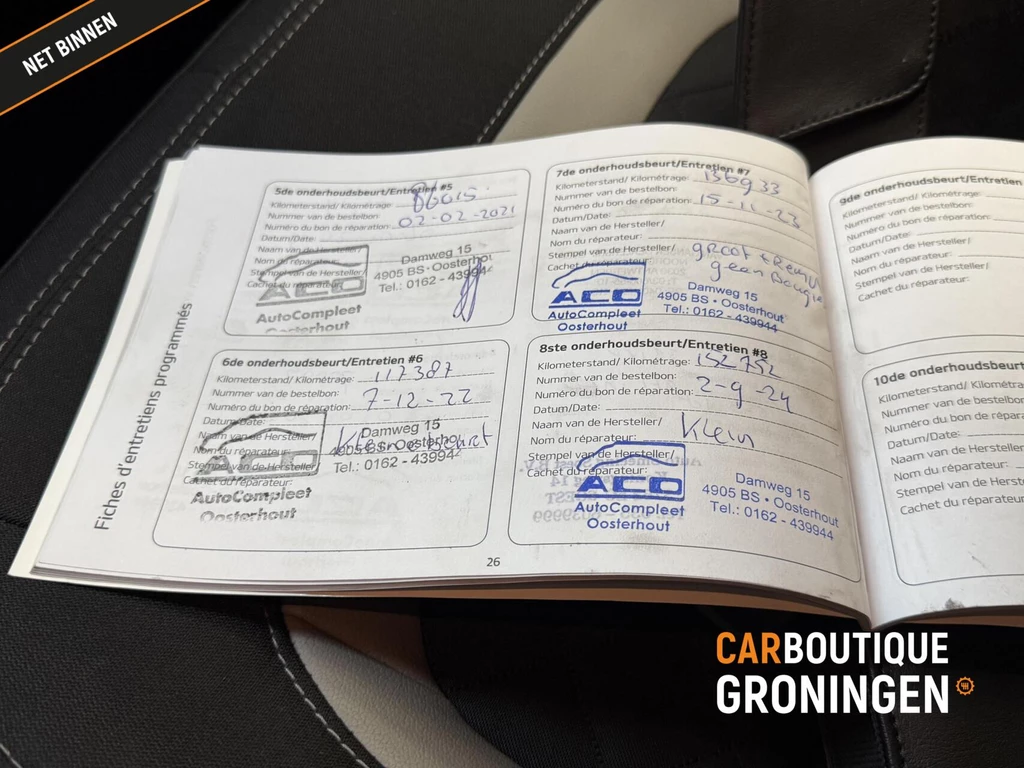 NET BINNEN
Fiches d'entretiens programmés
5de onderhoudsbeurt/Entretien #5
Kilometerstand/ Kilométrage:
Nummer van de bestelbon:
Numéro du bon de réparation: 02-02-2021
Datum/Date:
Naam van de Hersteller/
Nom du réparateur:
Stempel van de Hersteller/
Cachet du réparateur:
ACO
AutoCompleet
Oosterhout
Damweg 15
4905 BS • Oosterhout
Tel.: 0162 - 439944
6de onderhoudsbeurt/Entretien #6
Kilometerstand/ Kilométrage: 117387
Nummer van de bestelbon:
Numéro du bon de réparation: 7-12-22
Datum/Date:
Naam van de Hersteller/
Nom du réparateur:
Stempel van de Hersteller/
Cachet du réparateur:
ACO
AutoCompleet
Oosterhout
Damweg 15
4905 BS • Oosterhout
Tel.: 0162 - 439944
7de onderhoudsbeurt/Entretien #7
Kilometerstand/ Kilométrage: 136933
Nummer van de bestelbon:
Numéro du bon de réparation: 15-11-23
Datum/Date:
Naam van de Hersteller/
Nom du réparateur:
Stempel van de Hersteller/ groot
Cachet du réparateur: geen
ACO
AutoCompleet
Oosterhout
Damweg 15
4905 BS • Oosterhout
Tel.: 0162 - 439944
8ste onderhoudsbeurt/Entretien #8
Kilometerstand/ Kilométrage: 152752
Nummer van de bestelbon:
Numéro du bon de réparation: 2-9-24
Datum/Date:
Naam van de Hersteller/
Nom du réparateur: Klein
Stempel van de Hersteller/
Cachet du réparateur:
ACO
AutoCompleet
Oosterhout
Damweg 15
4905 BS • Oosterhout
Tel.: 0162 - 439944
26
9de onderhoudsbeurt/Entretien
Kilometerstand/ Kilométrage:
Nummer van de bestelbon:
Numéro du bon de réparation:
Datum/Date:
Naam van de Hersteller/
Nom du réparateur:
Stempel van de Hersteller/
Cachet du réparateur:
10de onderhoudsbeurt
Kilometerstand/ Kilométra
Nummer van de bestelbon
Numéro du bon de répara
Datum/Date:
Naam van de Hersteller/
Nom du réparateur:
Stempel van de Herst
Cachet du réparateur
CARBOUTIQUE
GRONINGEN